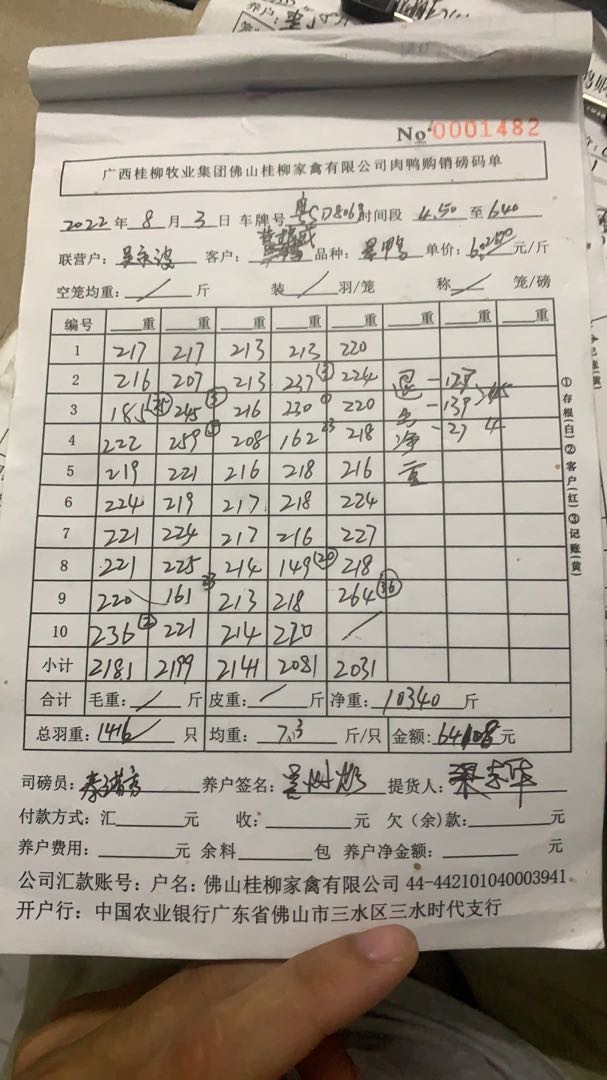 No 0001482
广西桂柳牧业集团佛山桂柳家禽有限公司肉鸭购销磅码单
2022 年 8 月 3 日 车牌号 时间段 4.50 至 640
联营户： 客户： 品种： 鸭 单价： 元/斤
空笼均重： / 斤 装 / 羽/笼 称 / 笼/磅
编号 重 重 重 重 重 重 重 重
1 217 217 213 213 220
2 216 207 213 237 224
3 185 245 216 230 220
4 222 259 208 162 23 218
5 219 221 216 218 216
6 224 219 217 218 224
7 221 224 217 216 227
8 221 225 214 149 20 218
9 220 161 23 213 218 264 36
10 236 221 214 220 /
小计 2181 2199 2141 2081 2031
合计 毛重： / 斤 皮重： / 斤 净重： 10340 斤
总羽重： 1416 只 均重： 7.3 斤/只 金额： 64108 元
司磅员： 养户签名： 提货人：
付款方式：汇 元 收： 元 欠（余）款： 元
养户费用： 元 余料 包 养户净金额： 元
公司汇款账号：户名：佛山桂柳家禽有限公司 44-442101040003941
开户行：中国农业银行广东省佛山市三水区三水时代支行
①存根(白)②客户(红)③记账(黄)